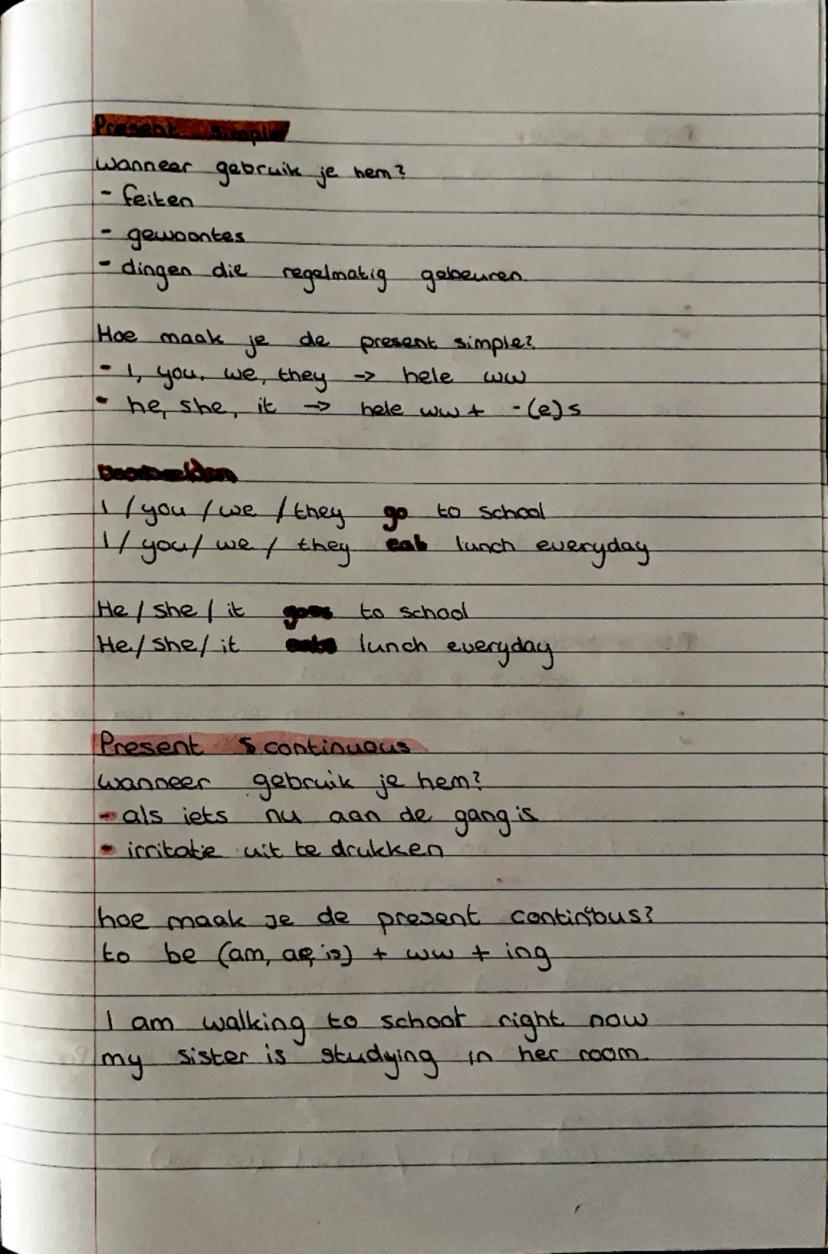 Present simple
wanneer gebruik je hem?
- feiten
- gewoontes
- dingen die regelmatig gebeuren.
Hoe maak je de present simple?
- I, you, we, they -> hele ww
- he, she, it -> hele ww + -(e)s
Voorbeelden
I / you / we / they go to school
I / you / we / they eat lunch everyday
He / she / it goes to school
He / she / it eats lunch everyday
Present continuous
wanneer gebruik je hem?
- als iets nu aan de gang is
- irritatie uit te drukken
hoe maak je de present continuous?
to be (am, are, is) + ww + ing
I am walking to school right now
my sister is studying in her room.